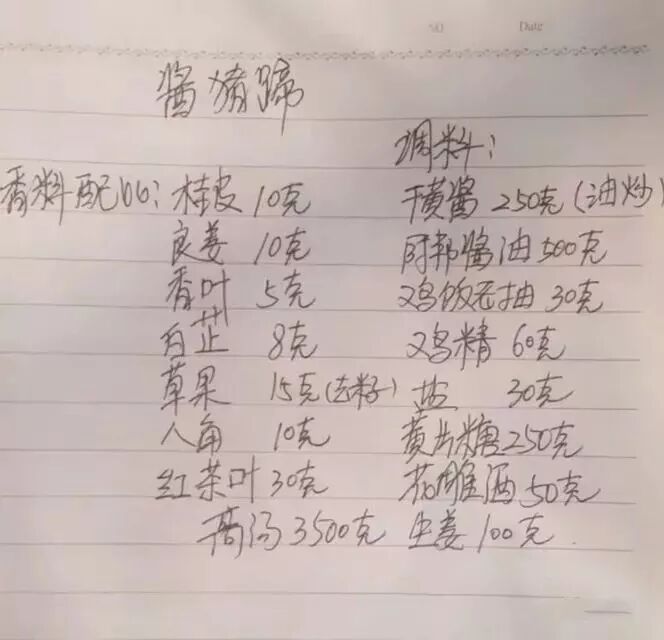 Date
酱猪蹄
调料：
香料配比：桂皮 10克 干黄酱 250克（油炒）
良姜 10克 厨邦酱油 500克
香叶 5克 鸡饭老抽 30克
白芷 8克 鸡精 60克
草果 15克（去籽） 盐 30克
八角 10克 黄片糖 250克
红茶叶 30克 花雕酒 50克
高汤 3500克 生姜 100克